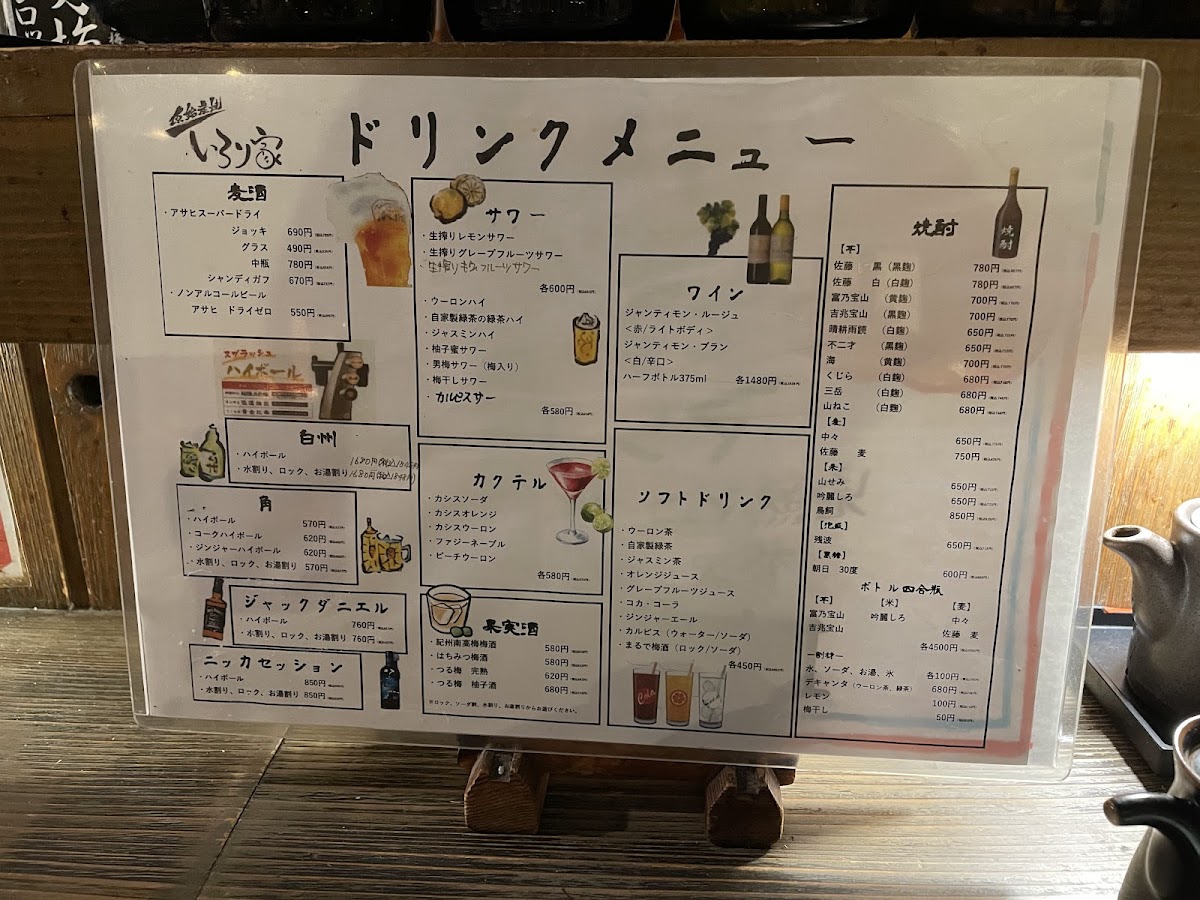 原始炭焼
いろり家
ドリンクメニュー
麦酒
・アサヒスーパードライ
ジョッキ 690円
グラス 490円
中瓶 780円
シャンディガフ 670円
・ノンアルコールビール
アサヒ ドライゼロ 550円
スプラッシュ
ハイボール
白州
・ハイボール 1680円(税込1848円)
・水割り、ロック、お湯割り 1680円(税込1848円)
角
・ハイボール 570円
・コークハイボール 620円
・ジンジャーハイボール 620円
・水割り、ロック、お湯割り 570円
ジャックダニエル
・ハイボール 760円
・水割り、ロック、お湯割り 760円
ニッカセッション
・ハイボール 850円
・水割り、ロック、お湯割り 850円
サワー
・生搾りレモンサワー
・生搾りグレープフルーツサワー
・生搾りキウィフルーツサワー
各600円
・ウーロンハイ
・自家製緑茶の緑茶ハイ
・ジャスミンハイ
・柚子蜜サワー
・男梅サワー（梅入り）
・梅干しサワー
・カルピスサワー
各580円
カクテル
・カシスソーダ
・カシスオレンジ
・カシスウーロン
・ファジーネーブル
・ピーチウーロン
各580円
果実酒
・紀州南高梅梅酒 580円
・はちみつ梅酒 580円
・つる梅 完熟 620円
・つる梅 柚子酒 680円
※ロック、ソーダ割、水割り、お湯割りからお選びください。
ワイン
ジャンティモン・ルージュ
＜赤/ライトボディ＞
ジャンティモン・ブラン
＜白/辛口＞
ハーフボトル375ml 各1480円
ソフトドリンク
・ウーロン茶
・自家製緑茶
・ジャスミン茶
・オレンジジュース
・グレープフルーツジュース
・コカ・コーラ
・ジンジャーエール
・カルピス（ウォーター/ソーダ）
・まるで梅酒（ロック/ソーダ）
各450円
Cola
焼酎
焼酎
【芋】
佐藤 黒（黒麹） 780円
佐藤 白（白麹） 780円
富乃宝山 （黄麹） 700円
吉兆宝山 （黒麹） 700円
晴耕雨読 （白麹） 650円
不二才 （黒麹） 650円
海 （黄麹） 700円
くじら （白麹） 680円
三岳 （白麹） 680円
山ねこ （白麹） 680円
【麦】
中々 650円
佐藤 麦 750円
【米】
山せみ 650円
吟麗しろ 650円
鳥飼 850円
【泡盛】
残波 650円
【黒糖】
朝日 30度 600円
ボトル四合瓶
【芋】 【米】 【麦】
富乃宝山 吟麗しろ 中々
吉兆宝山 佐藤 麦
各4500円
ー割材ー
水、ソーダ、お湯、氷 各100円
デキャンタ（ウーロン茶、緑茶） 680円
レモン 100円
梅干し 50円